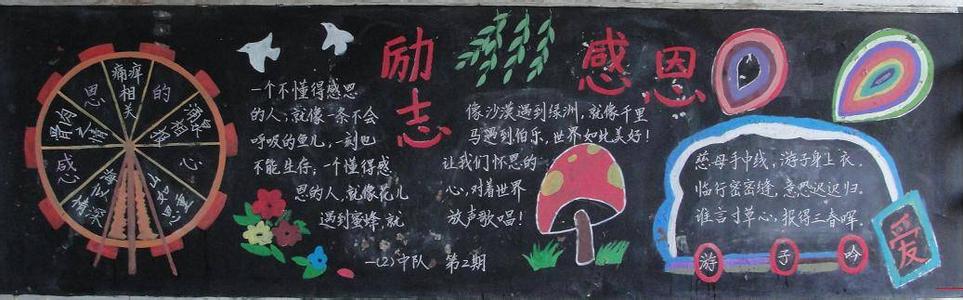 痛痒
相
美
思
的
骨肉
之情
感
心
情深
山
如
恩重
励志
感恩
一个不懂得感恩
的人,就像一条不会
呼吸的鱼儿,一刻也
不能生存;一个懂得感
恩的人,就像花儿
遇到蜜蜂,就
像沙漠遇到绿洲,就像千里
马遇到伯乐,世界如此美好!
让我们怀恩的
心,对着世界
放声歌唱!
一(2)中队 第2期
慈母手中线,游子身上衣。
临行密密缝,意恐迟迟归。
谁言寸草心,报得三春晖。
游子吟
爱